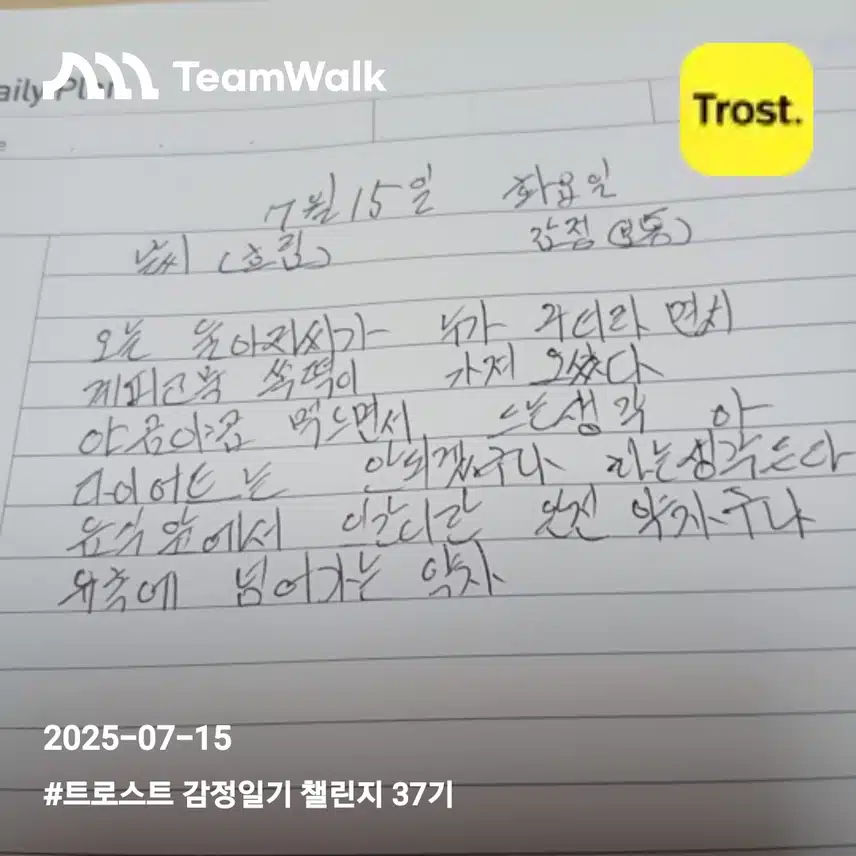 TeamWalk
Trost.
aily Plan
7월 15일 화요일
날씨 (흐림) 감정 (보통)
오늘 늘아저씨가 누가 주더라 면서
계피고물 쑥떡이 가져 오셨다
야곰야곰 먹으면서 드는생각 아
다이어트는 안되겠구나 라는생각든다
음식앞에서 이란 완전 약자구나
유혹에 넘어가는 약자
2025-07-15
#트로스트 감정일기 챌린지 37기